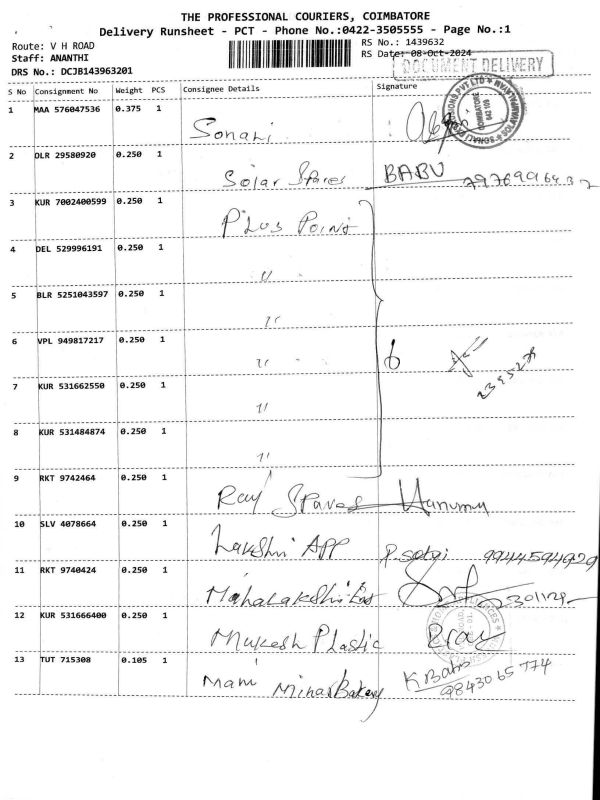 THE PROFESSIONAL COURIERS, COIMBATORE
Delivery Runsheet - PCT - Phone No.:0422-3505555 - Page No.:1
Route: V H ROAD
RS No.: 1439632
Staff: ANANTHI
RS Date: 08-Oct-2024
DRS No.: DCJB143963201
DOCUMENT DELIVERY
S No Consignment No Weight PCS Consignee Details Signature
1 MAA 576047536 0.375 1 Sonali
2 DLR 29580920 0.250 1 Solar Spares BABU
3 KUR 7002400599 0.250 1 Plus Point
4 DEL 529996191 0.250 1 "
5 BLR 5251043597 0.250 1 "
6 VPL 949817217 0.250 1 " 6
7 KUR 531662550 0.250 1 "
8 KUR 531484874 0.250 1 "
9 RKT 9742464 0.250 1 Raj Spares
10 SLV 4078664 0.250 1 Lakshmi APP 9944594929
11 RKT 9740424 0.250 1 Mahalakshmi
12 KUR 531666400 0.250 1 Mukesh Plastic
13 TUT 715308 0.105 1 Mani Bakery K Babu
9843065774